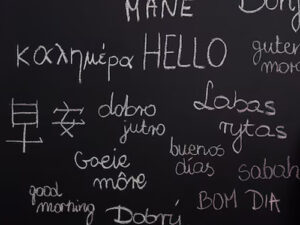 MANE
καλημέρα
HELLO
guten
早安
dobro
jutro
Labas
rytas
Goeie
môre
buenos
días
sabah
good
morning
Dobrú
BOM DIA